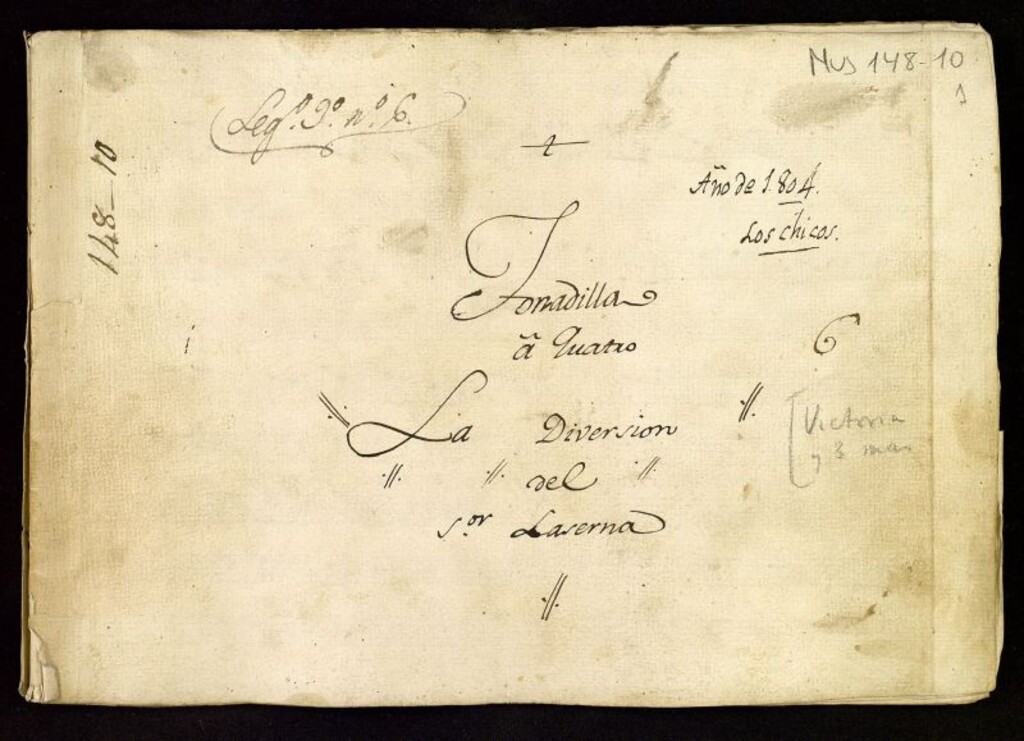 Mus 148-10
1
Leg.º 9.º n.º 6.
148-10
Año de 1.804.
Los chicos.
Tonadilla
â Quatro
6
La Diversion
del
S.or Laserna
[Victoria
y 3 mas